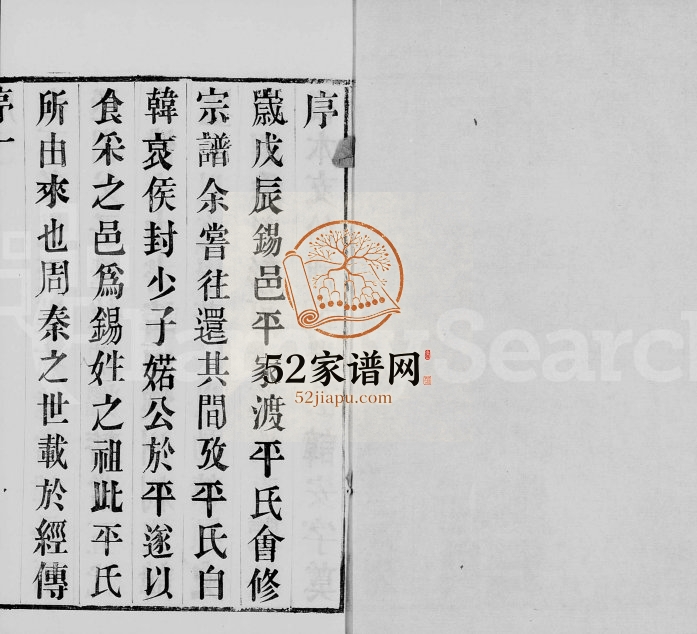 序
歲戊辰錫邑平家渡平氏會修
宗譜余嘗往還其間攷平氏自
韓哀侯封少子婼公於平遂以
食采之邑爲錫姓之祖此平氏
所由來也周秦之世載於經傳
序一
52家谱网
52jiapu.com
Search